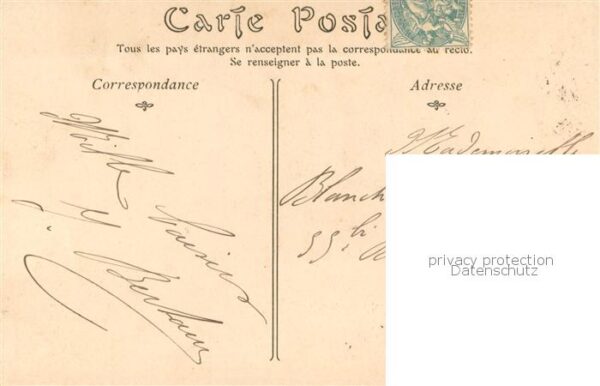 Carte Posta
Tous les pays étrangers n'acceptent pas la correspondance au recto.
Se renseigner à la poste.
Correspondance
Adresse
Mille
baisers
Mademoiselle
Blanch
55 bis
privacy protection
Datenschutz